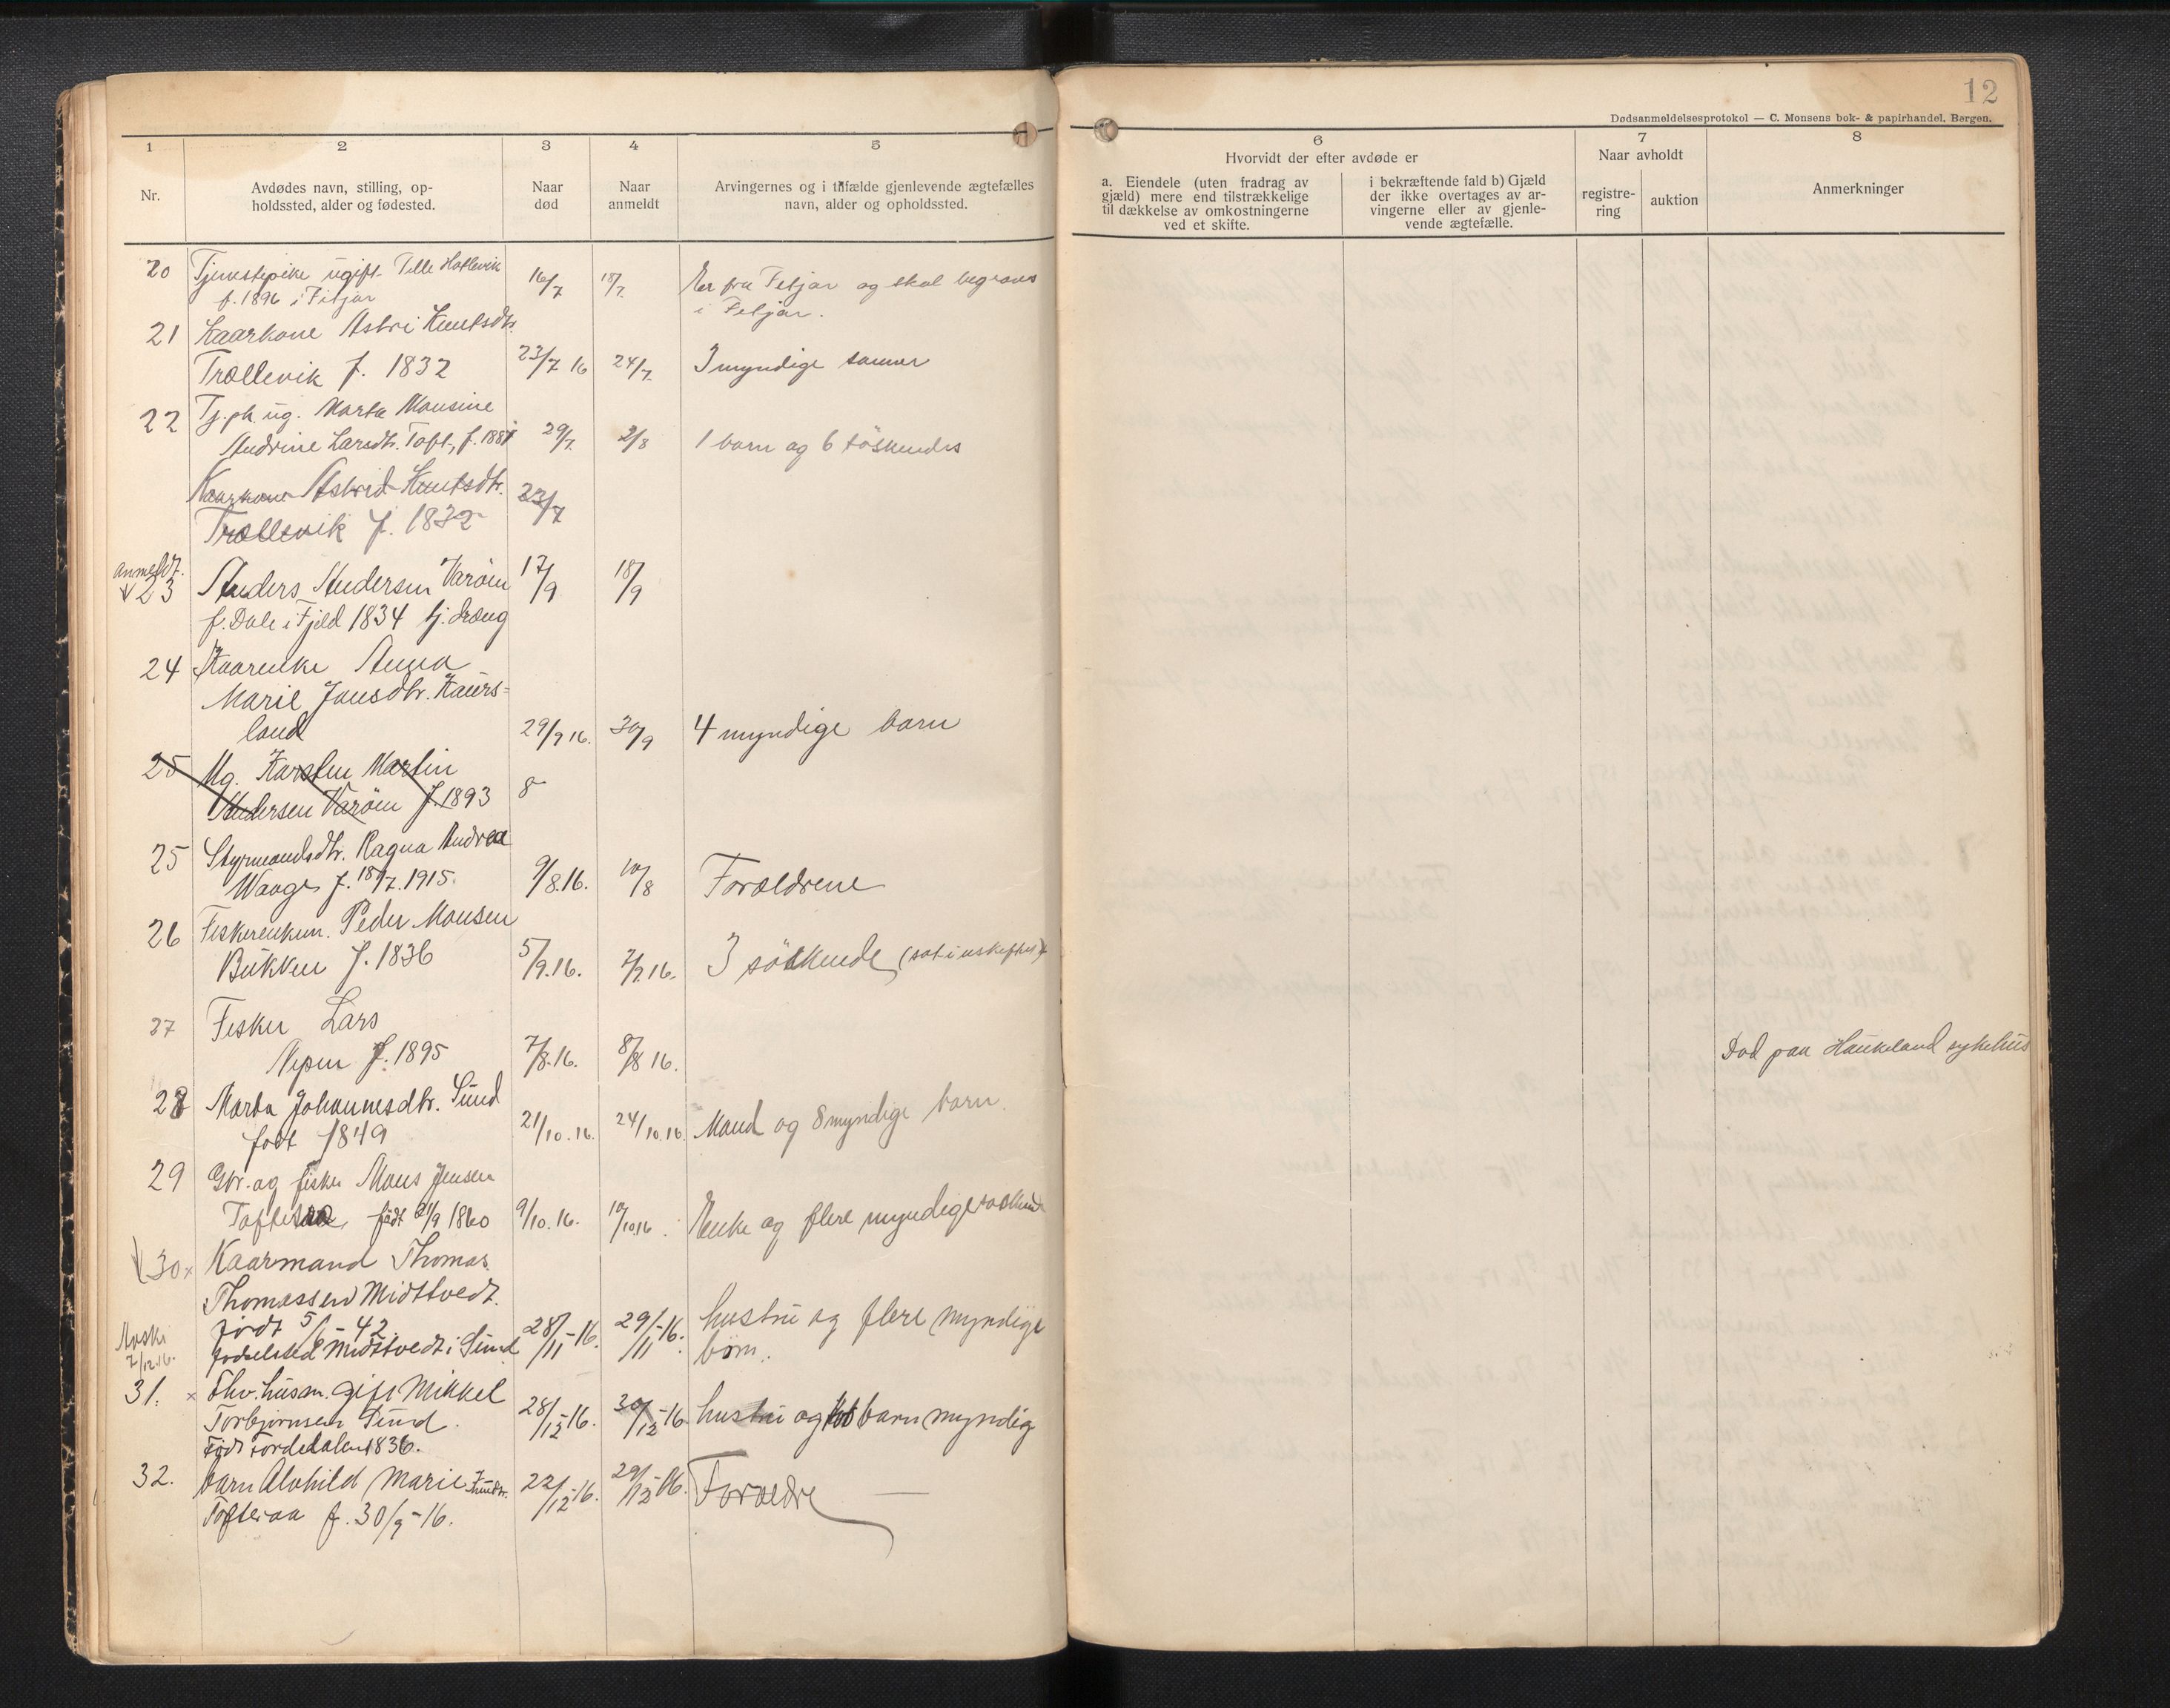 12
Dødsanmeldelsesprotokol — C. Monsens bok- & papirhandel, Bergen.
1
2
3
4
5
6
7
8
Nr.
Avdødes navn, stilling, op-
holdssted, alder og fødested.
Naar
død
Naar
anmeldt
Arvingernes og i tilfælde gjenlevende ægtefælles
navn, alder og opholdssted.
Hvorvidt der efter avdøde er
a. Eiendele (uten fradrag av
gjæld) mere end tilstrækkelige
til dækkelse av omkostningerne
ved et skifte.
i bekræftende fald b) Gjæld
der ikke overtages av ar-
vingerne eller av gjenle-
vende ægtefælle.
Naar avholdt
registre-
ring
auktion
Anmerkninger
20 Tjenestepike ugift Tille 16/7 18/7 Er fra Fitjar og skal begraves
f. 1896 i Fitjar i Fitjar.
21 Kaarkone Astri Knutsdtr.
Trællevik f. 1832 23/7 16 24/7 3 myndige sønner
22 Tj.pk. ug. Marta Monsine
Andrine Larsdtr. Toft, f. 29/7 2/8 1 barn og 6 söskende
Kaarkone Astrid Knutsdtr. 23/7
Trællevik f. 1832
anmeldt.
23 Anders Andersen Varöen 17/9 18/9
f. Dale i Fjeld 1834 tj. dræng
24 Kaarenke Anna
Marie Jonsdtr. Kaurs=
land 29/9 16. 30/9 4 myndige barn
25 Ug. Karsten Martin 8
Andersen Varöen f. 1893
25 Styrmandsdtr. Ragna Andrea
Waage f. 18/7.1915. 9/8.16. 10/8 Forældrene
26 Fiskerenkem. Peder Monsen
Bukken f. 1836 5/9.16. 7/9.16. 3 söskende (sat i uskiftet)
27 Fisker Lars
Vepen f. 1895 7/8.16. 8/8 16. Död paa Haukeland sykehus
28 Marta Johannesdtr. Sund
født 1849 21/10.16. 24/10.16. Mand og 8 myndige barn.
29 Gbr. og fisker Mons Jensen
født 21/9 1860 9/10.16. 10/10.16. Enke og flere myndige söskende
30 x Kaarmand Thomas
Thomassen Midttvedt.
født 5/6 - 42. 28/11-16. 29/11-16. hustru og flere myndige
fødselsted Midttvedt i Sund børn.
7/12.16.
31. x Fhv. husm. gift Mikkel
Torbjørnsen Sund. 28/12-16. 30/12-16. hustru og barn myndig
Født Fordedalen 1836.
32. barn Alvhild Marie 22/12-16. 29/12-16. Forældre —
Tofteraa f. 30/9-16.